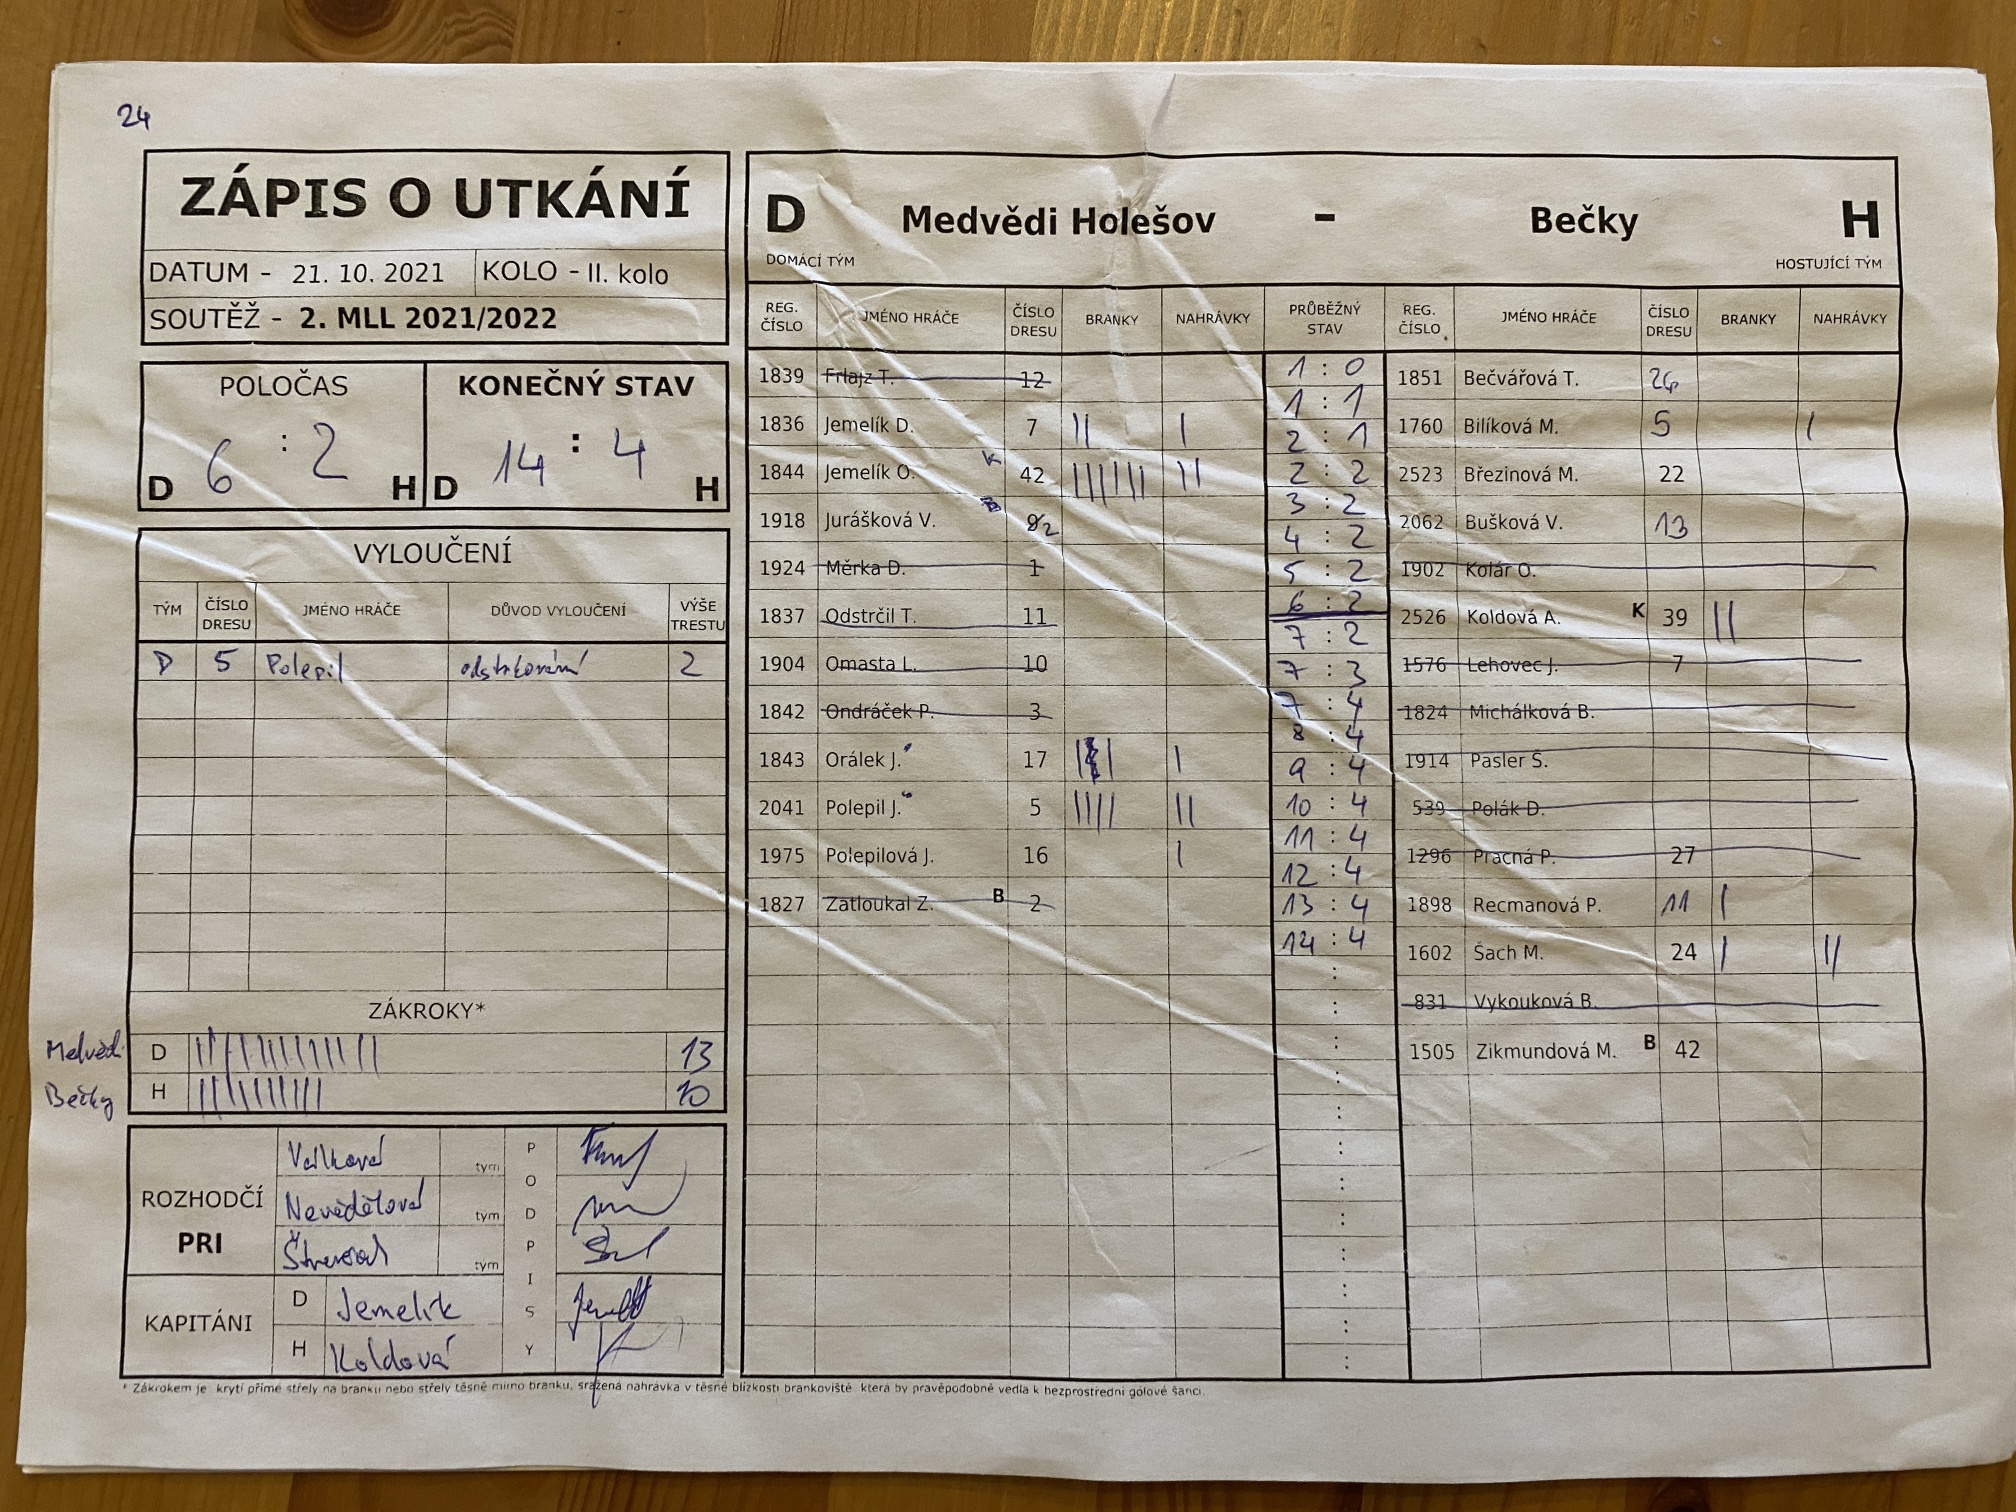 24
ZÁPIS O UTKÁNÍ
DATUM - 21. 10. 2021 KOLO - II. kolo
SOUTĚŽ - 2. MLL 2021/2022
POLOČAS KONEČNÝ STAV
D 6 : 2 H D 14 : 4 H
VYLOUČENÍ
TÝM ČÍSLO DRESU JMÉNO HRÁČE DŮVOD VYLOUČENÍ VÝŠE TRESTU
D 5 Polepil odstrkování 2
ZÁKROKY*
Medvědi D 13
Bečky H 10
ROZHODČÍ
PRI
Nevědělová tým
tým
tým
PODPISY
KAPITÁNI
D Jemelík
H Koldová
D Medvědi Holešov - Bečky H
DOMÁCÍ TÝM HOSTUJÍCÍ TÝM
REG. ČÍSLO JMÉNO HRÁČE ČÍSLO DRESU BRANKY NAHRÁVKY PRŮBĚŽNÝ STAV REG. ČÍSLO JMÉNO HRÁČE ČÍSLO DRESU BRANKY NAHRÁVKY
1839 Frlajz T. 12
1836 Jemelík D. 7 || |
1844 Jemelík O. K 42 ||
1918 Jurášková V. 2
1924 Měrka D. 1
1837 Odstrčil T. 11
1904 Omasta L. 10
1842 Ondráček P. 3
1843 Orálek J. 17 |
2041 Polepil J. 5 |||| ||
1975 Polepilová J. 16 |
1827 Zatloukal Z. B 2
1 : 0
1 : 1
2 : 1
2 : 2
3 : 2
4 : 2
5 : 2
6 : 2
7 : 2
7 : 3
7 : 4
8 : 4
9 : 4
10 : 4
11 : 4
12 : 4
13 : 4
14 : 4
1851 Bečvářová T.
1760 Bilíková M. 5 |
2523 Březinová M. 22
2062 Bušková V. 13
1902 Kolár O.
2526 Koldová A. K 39 ||
1576 Lehovec J. 7
1824 Michálková B.
1914 Pasler Š.
539 Polák D.
1296 Pracná P. 27
1898 Recmanová P. 11 |
1602 Šach M. 24 | ||
831 Vykouková B.
1505 Zikmundová M. B 42
* Zákrokem je krytí přímé střely na branku nebo střely těsně mimo branku, sražená nahrávka v těsné blízkosti brankoviště která by pravěpodobně vedla k bezprostřední gólové šanci.